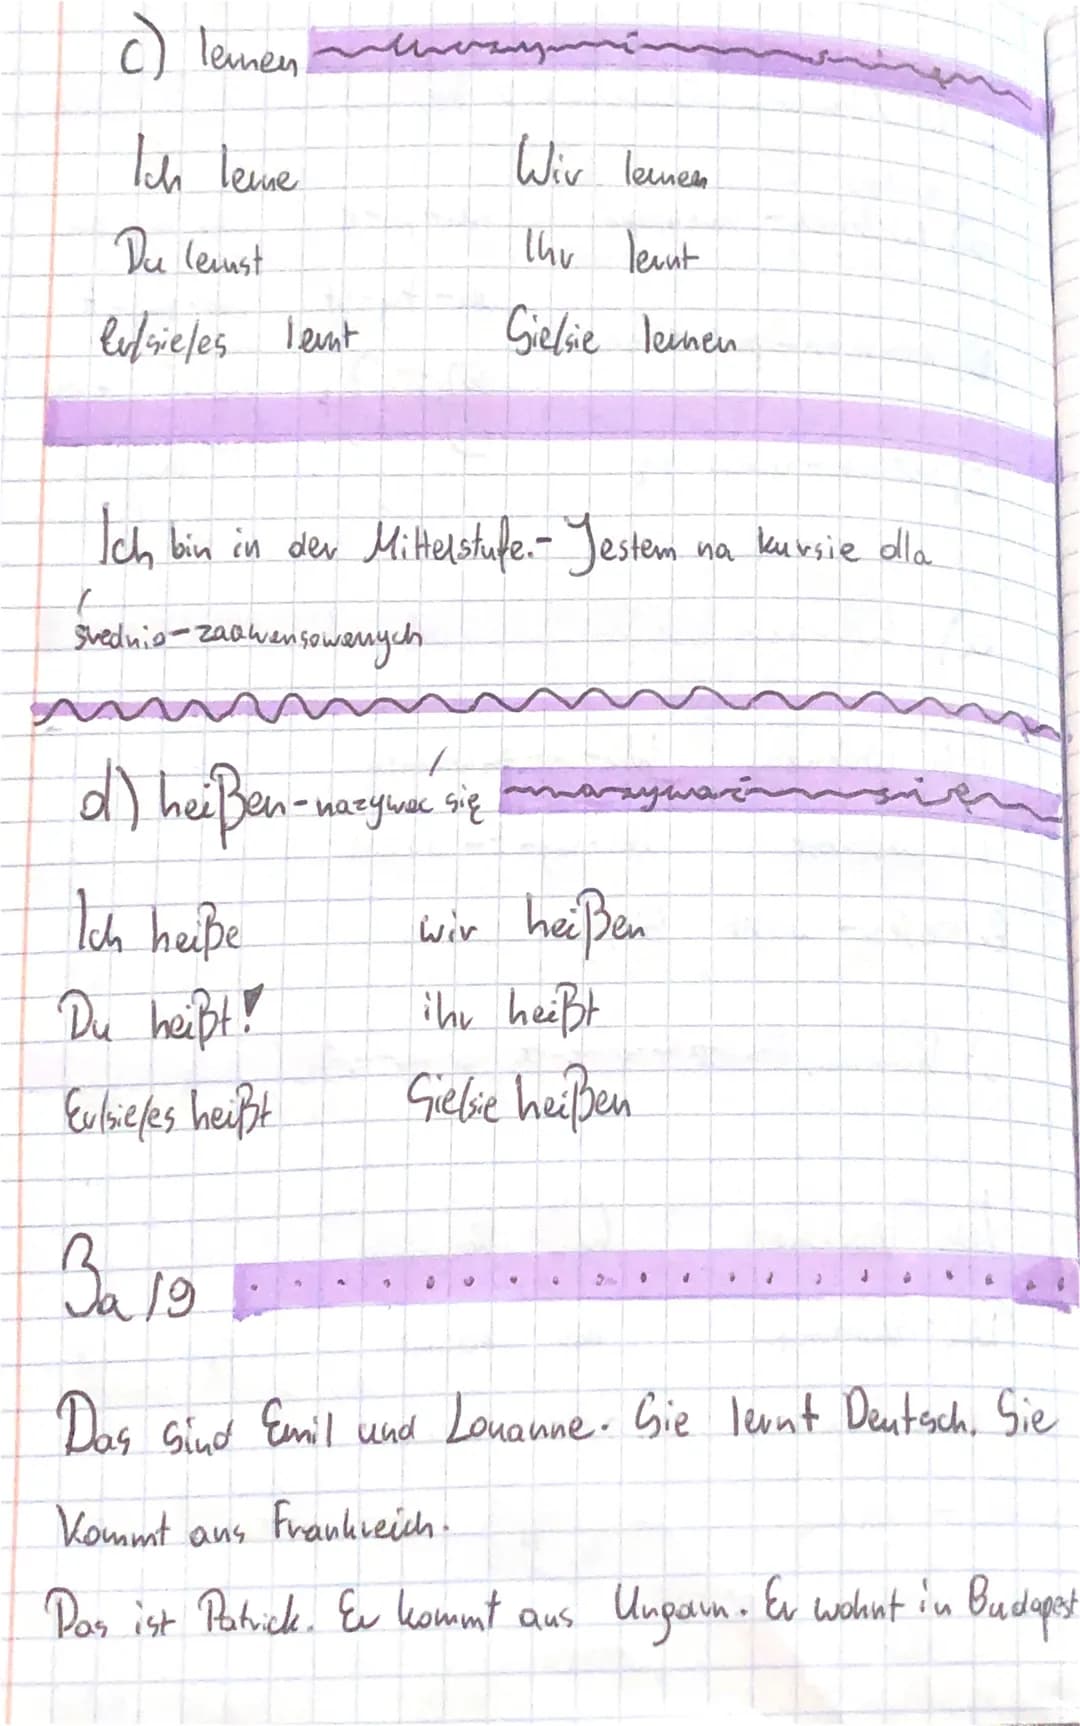 c) lernen
Ich lerne Wir lernen
Du lernst Ihr lernt
Er/sie/es lernt Sie/sie lernen
Ich bin in der Mittelstufe.- Jestem na kursie dla
średnio-zaawansowanych
d) heißen-nazywać się nazywać się
Ich heiße wir heißen
Du heißt! ihr heißt
Er/sie/es heißt Sie/sie heißen
3a/19
Das sind Emil und Louanne. Sie lernt Deutsch. Sie
kommt aus Frankreich.
Das ist Patrick. Er kommt aus Ungarn. Er wohnt in Budapest